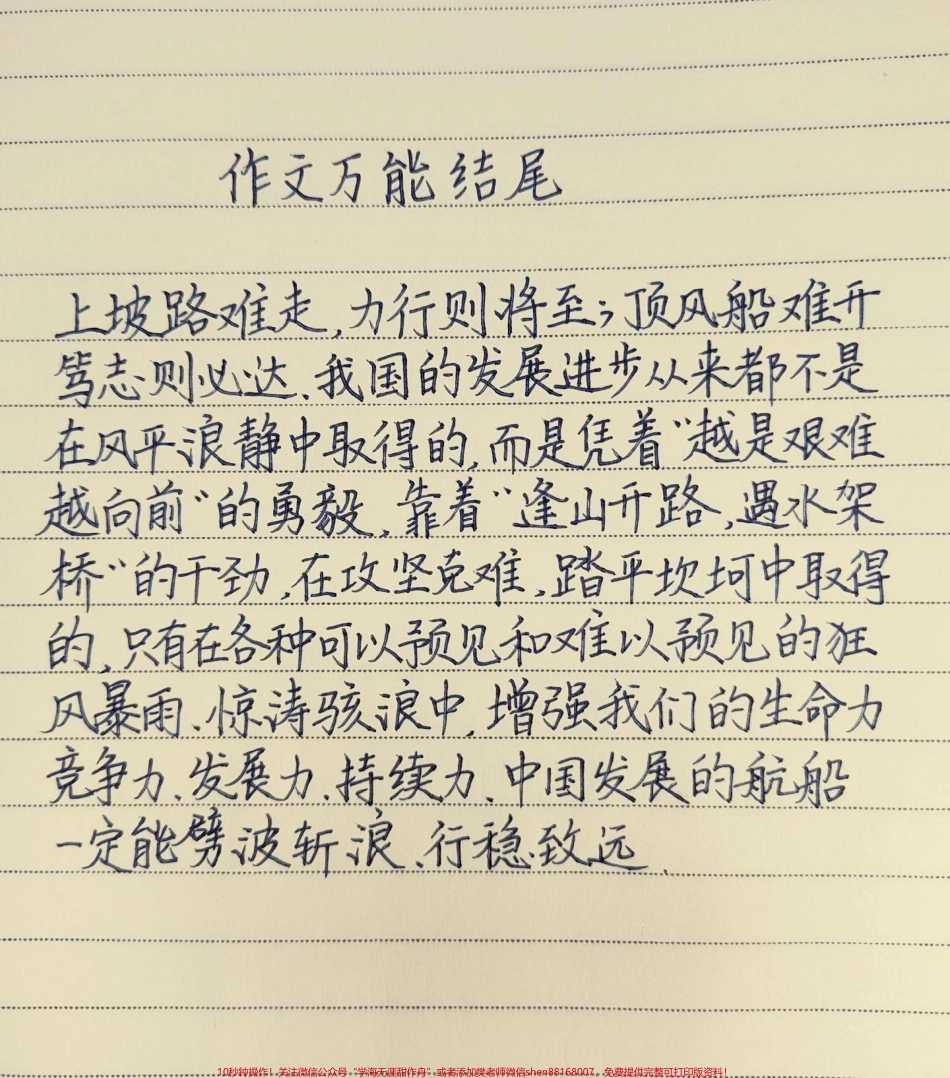 作文万能结尾
上坡路难走,力行则将至;顶风船难开
笃志则必达.我国的发展进步从来都不是
在风平浪静中取得的,而是凭着"越是艰难
越向前"的勇毅,靠着"逢山开路,遇水架
桥"的干劲,在攻坚克难,踏平坎坷中取得
的,只有在各种可以预见和难以预见的狂
风暴雨、惊涛骇浪中,增强我们的生命力
竞争力、发展力、持续力、中国发展的航船
一定能劈波斩浪、行稳致远.
10秒钟操作!关注微信公众号"学海无涯甜作舟"或者添加奥老师微信shen88168007,免费提供完整可打印版资料!